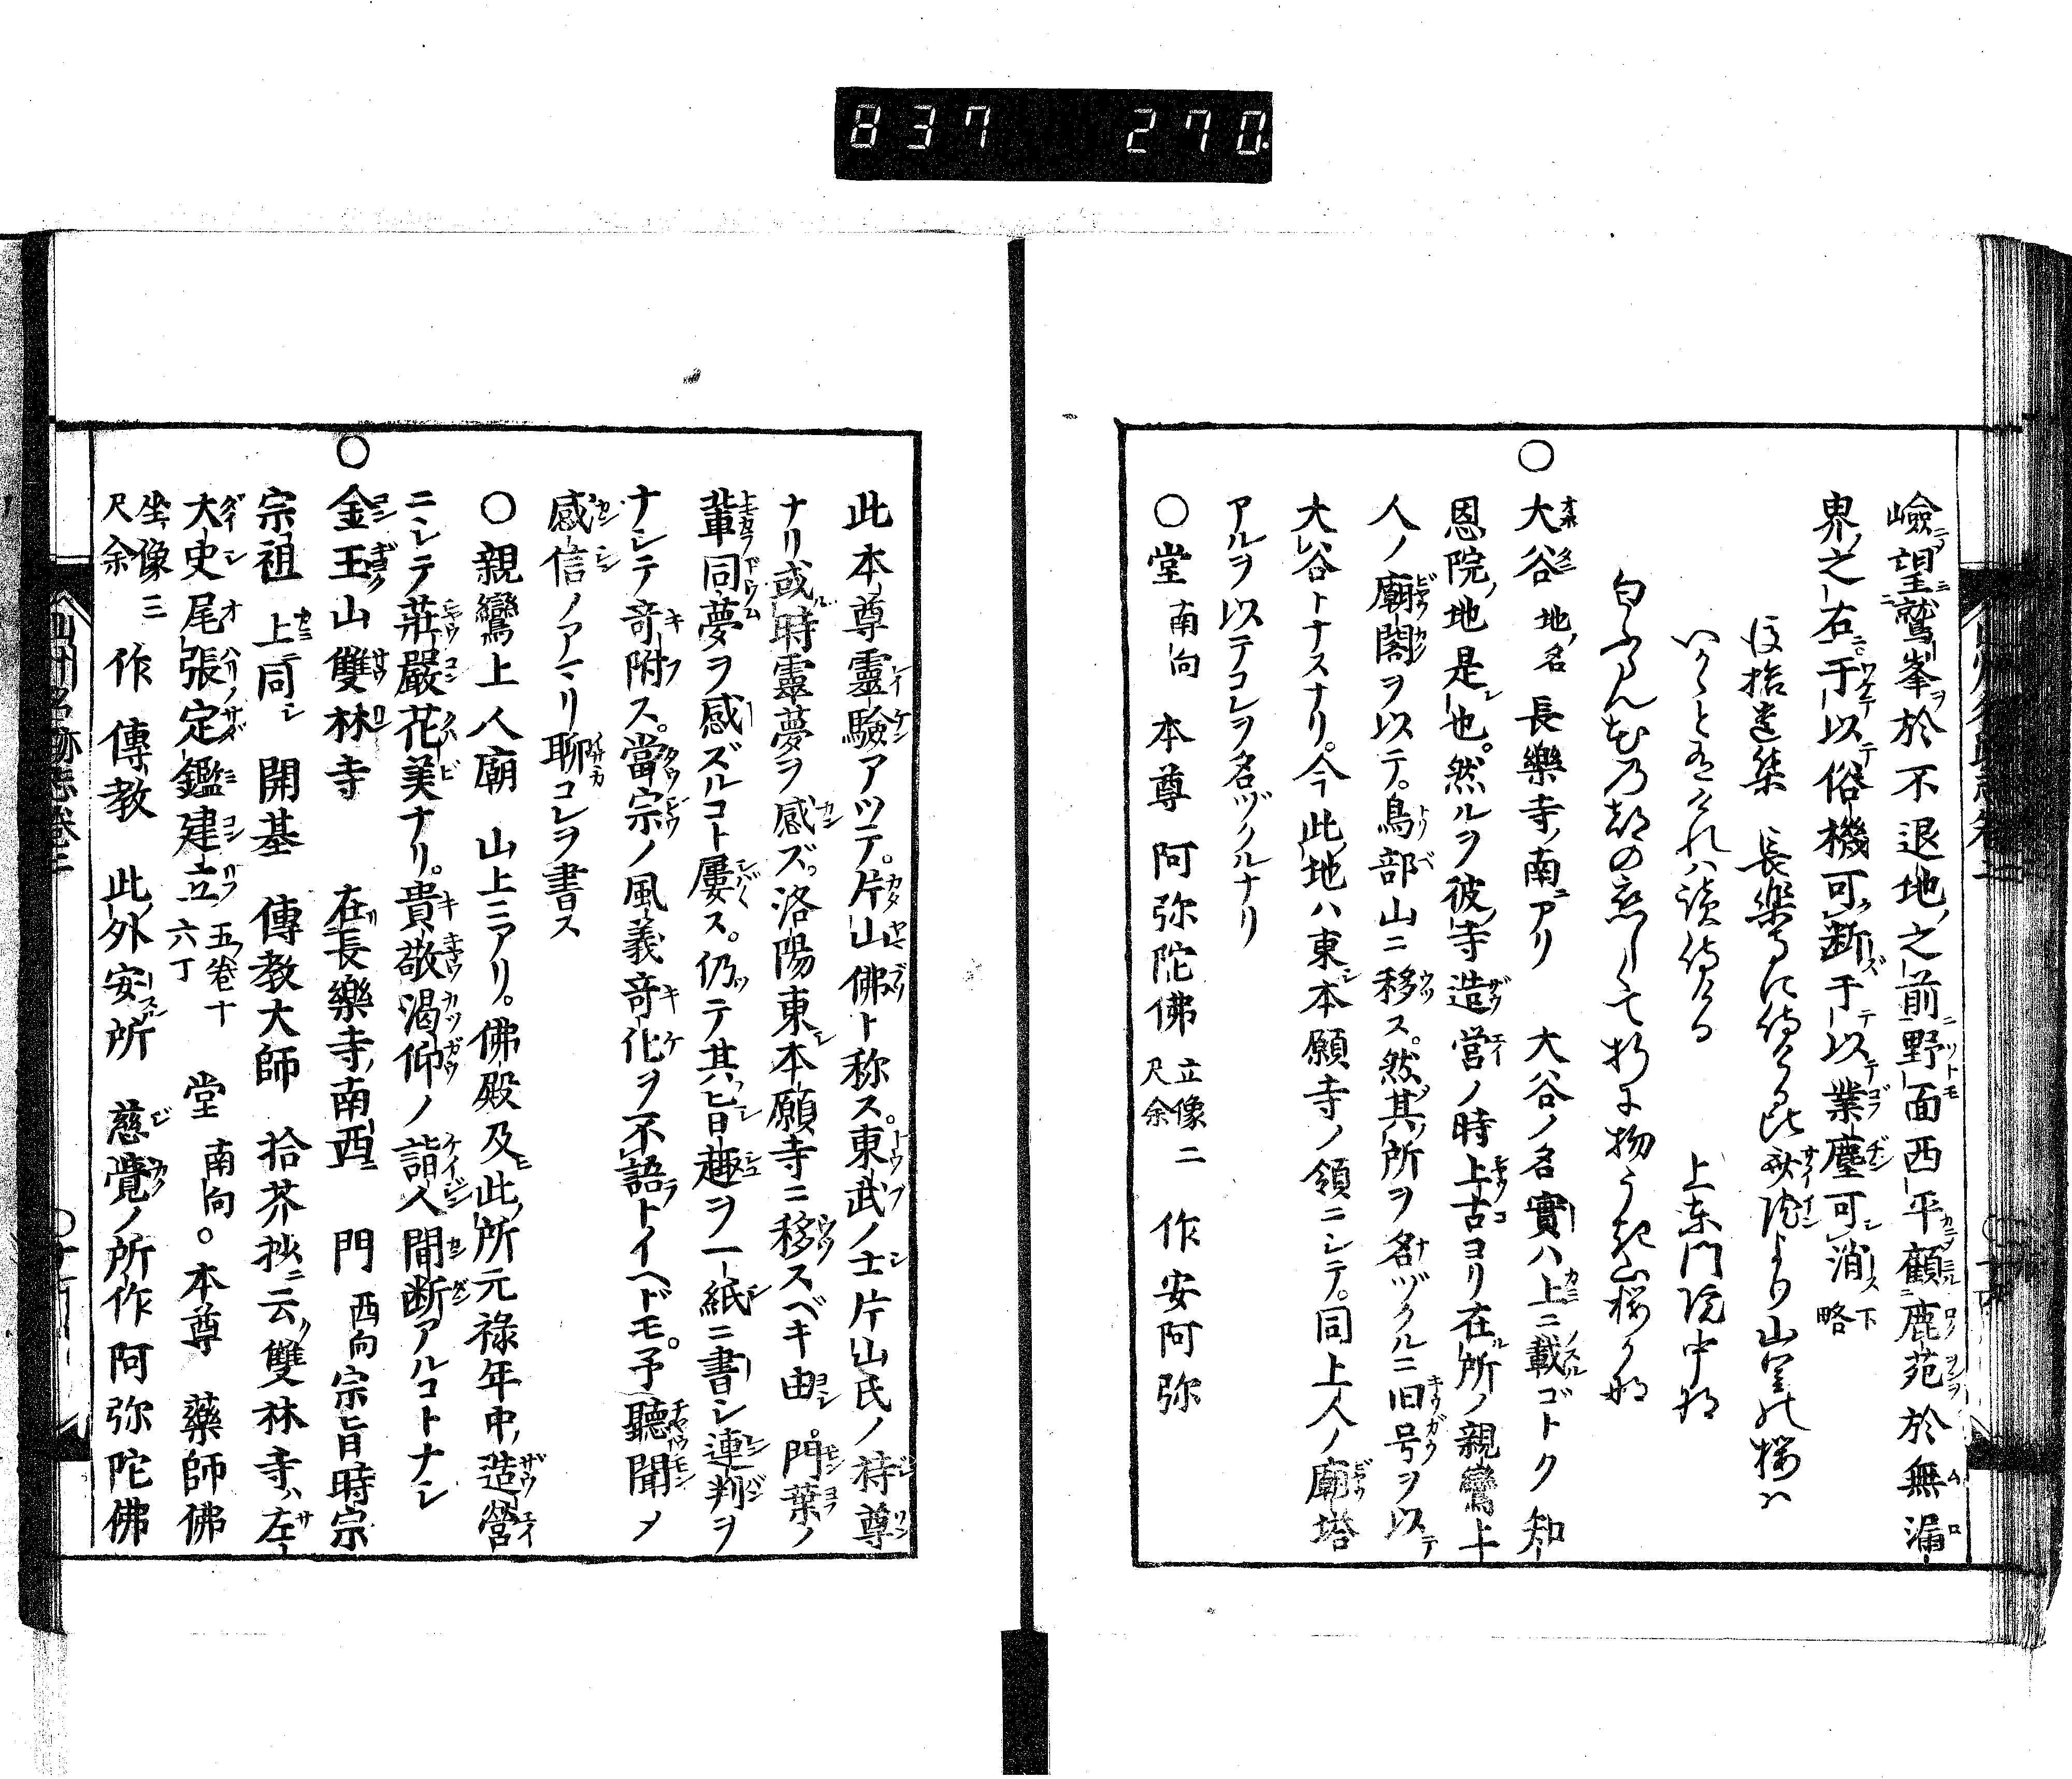 837 270
嶮望鷲峯於不退地之前野面西平顧鹿苑於無漏
界之右于以俗機可断于以業塵可消下略
後拾遺集 長樂寺に侍ける比斎院より山里の桜は
いかゝと有けれハ讀侍ける 上東門院中将
にほふらん花の都の恋しくて折に物うき山桜かな
○大谷地名 長樂寺ノ南ニアリ 大谷ノ名實ハ上ニ載ゴトク知
恩院ノ地是也。然ルヲ彼寺造営ノ時上古ヨリ在所ノ親鸞上
人ノ廟閣ヲ以テ。鳥部山ニ移ス。然其所ヲ名ヅクルニ旧号ヲ以テ
大谷トナスナリ。今此地ハ東本願寺ノ領ニシテ。同上人ノ廟塔
アルヲ以テコレヲ名ヅクルナリ
○堂南向 本尊 阿弥陀佛立像二尺余 作安阿弥
此本尊靈驗アツテ。片山佛ト称ス。東武ノ士片山氏ノ持尊
ナリ或時靈夢ヲ感ズ。洛陽東本願寺ニ移スベキ由。門葉ノ
輩同夢ヲ感ズルコト屢ス。仍テ其旨趣ヲ一紙ニ書シ連判ヲ
ナシテ奇附ス。當宗ノ風義奇化ヲ不語トイヘドモ。予聽聞ノ
感信ノアマリ聊コレヲ書ス
○親鸞上人廟 山上ニアリ。佛殿及此所元禄年中造營
ニシテ莊嚴花美ナリ。貴敬渇仰ノ詣人間断アルコトナシ
○金玉山雙林寺 在長樂寺南西 門西向宗旨時宗
宗祖上同シ 開基 傳教大師 拾芥抄ニ云雙林寺ハ左
大史尾張定鑑建立五巻十六丁 堂南向。本尊 藥師佛
坐像三尺余 作 傳教 此外安所 慈覺ノ所作阿弥陀佛